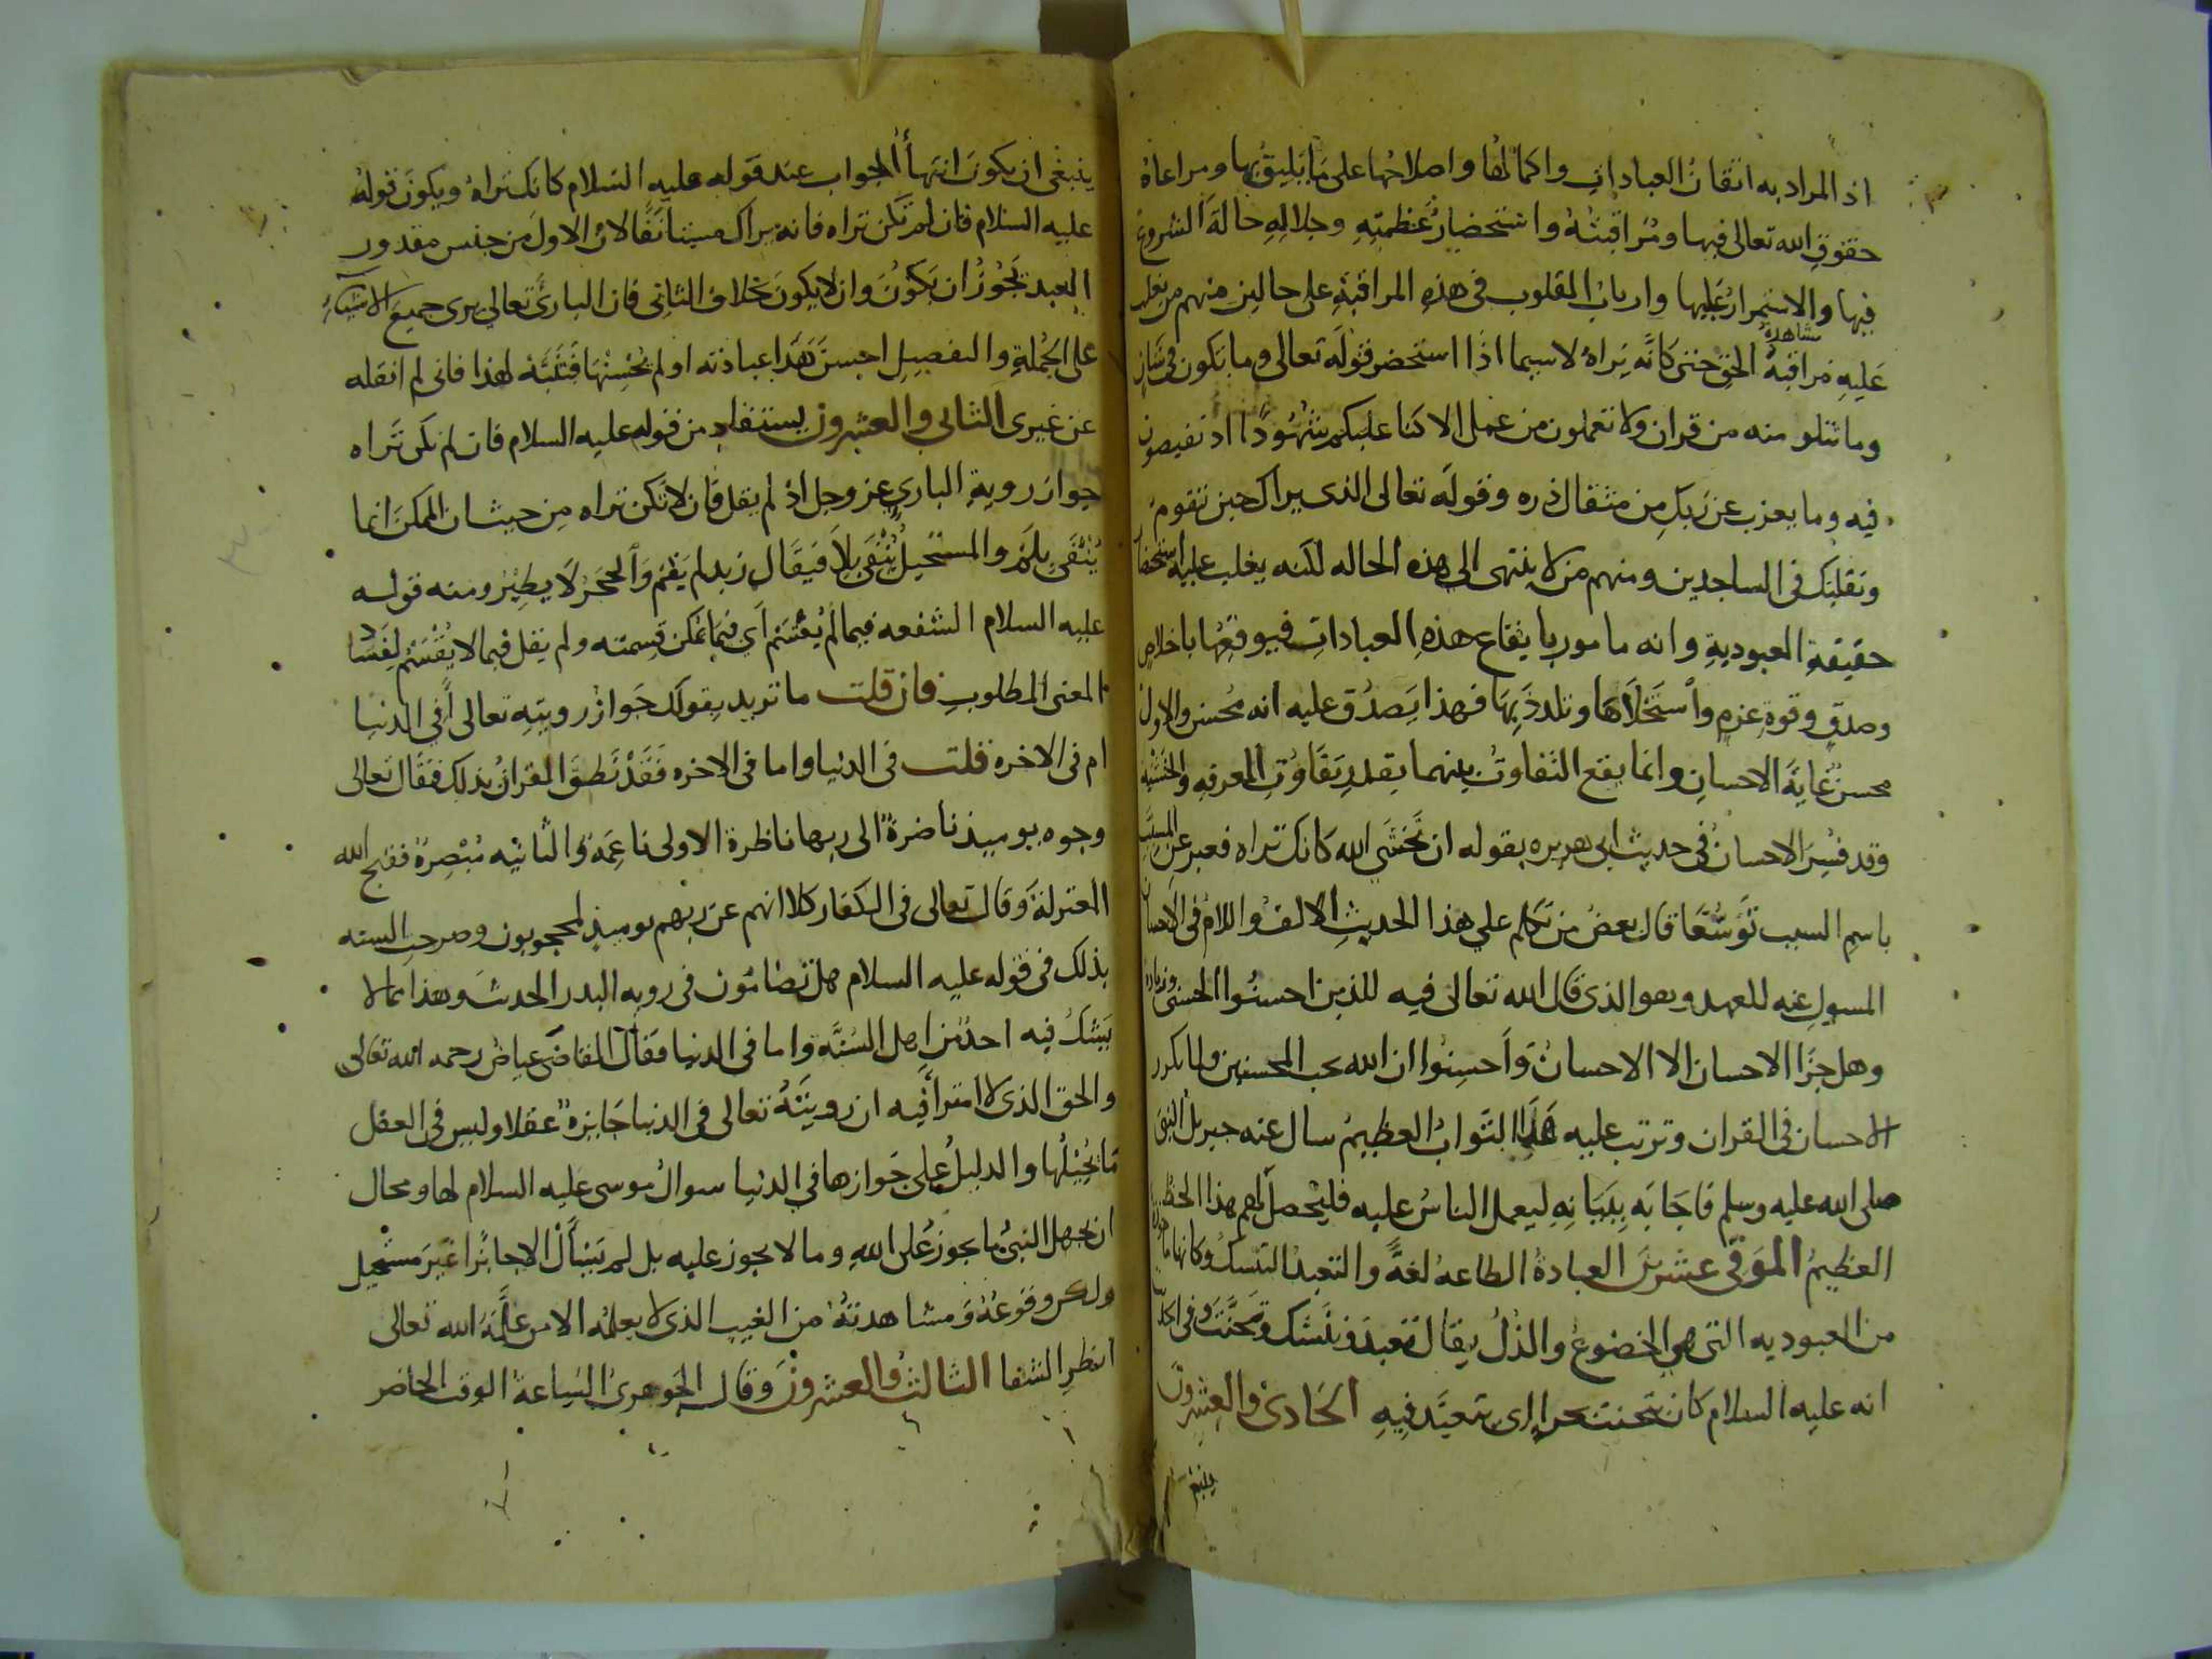 اذ المراد به اتقان العبادات واكمالها واصلاحها على ما يليق بها ومراعاة
حقوق الله تعالى فيها ومراقبته واستحضار عظمته وجلاله حالة الشروع
فيها والاستمرار عليها وارباب القلوب في هذه المراقبة على حالين منهم من يغلب
عليه مراقبة مشاهدة الحق حتى كانه يراه لا سيما اذا استحضر قوله تعالى وما تكون في شان
وما تتلو منه من قران ولا تعملون من عمل الا كنا عليكم شهودا اذ تفيضون
فيه وما يعزب عن ربك من مثقال ذره وقوله تعالى الذي يراك حين تقوم
وتقلبك في الساجدين ومنهم من لا ينتهى الى هذه الحاله لكنه يغلب عليه استحضار
حقيقة العبودية وانه مامور بايقاع هذه العبادات فيوقعها باخلاص
وصدق وقوة عزم واستحلاها وتلذذ بها فهذا يصدق عليه انه محسن والاول
محسن غاية الاحسان وانما يقع التفاوت بينهما بقدر تفاوت المعرفه والخشية
وقد فسر الاحسان في حديث ابى هريره بقوله ان تخشى الله كانك تراه فعبر عن المسبب
باسم السبب توسعا قال بعض من تكلم على هذا الحديث الالف واللام في الاحسان
المسول عنه للعهد وهو الذي قال الله تعالى فيه للذين احسنوا الحسنى وزيادة
وهل جزا الاحسان الا الاحسان واحسنوا ان الله يحب المحسنين ولما تكرر
الاحسان في القران وترتب عليه هذا الثواب العظيم سال عنه جبريل النبي
صلى الله عليه وسلم فاجابه ببيانه ليعمل الناس عليه فليحصل لهم هذا الحظ
العظيم الموفي عشرين العبادة الطاعة لغة والتعبد التنسك وكانها ماخوذة
من العبوديه التي هي الخضوع والذل يقال تعبد وتنسك وتحنث وفي الحديث
انه عليه السلام كان يتحنث بحرا اى يتعبد فيه الحادي والعشرون
ينبغي
ينبغى ان يكون انتهاأ الجواب عند قوله عليه السلام كانك تراه ويكون قوله
عليه السلام فان لم تكن تراه فانه يراك مستانفا لان الاول من جنس مقدور
العبد يجوز ان يكون وان لا يكون بخلاف الثاني فان البارئ تعالى يرى جميع الاشياء
على الجملة والتفصيل احسن هذا عباذته او لم يحسنها فتنبه لهذا فانى لم انقله
عن غيرى الثاني والعشرون يستفاد من قوله عليه السلام فان لم تكن تراه
جواز روية الباري عز وجل اذ لم يقل فان لا تكن تراه من حيث ان الممكن انما
ينتفى بلم والمستحيل ينتفى بلا فيقال زيد لم يقم والحجر لا يطير ومنه قوله
عليه السلام الشفعه فيما لم يقسم اي فيما يمكن قسمته ولم يقل فيما لا يقسم لفساد
المعنى المطلوب فان قلت ما تريد بقولك جواز رويته تعالى أفي الدنيا
ام في الاخره قلت في الدنيا واما في الاخره فقد نطق القران بذلك فقال تعالى
وجوه يوميذ ناضرة الى ربها ناظرة الاولى ناعمة والثانيه مبصرة فقبح الله
المعتزلة وقال تعالى في الكفار كلا انهم عن ربهم يوميذ لمحجوبون وصرحت السنه
بذلك في قوله عليه السلام هل تضامون في رويه البدر الحديث وهذا مما لا
يشك فيه احد من اهل السنة واما في الدنيا فقال القاضى عياض رحمه الله تعالى
والحق الذي لا امترأ فيه ان رويته تعالى في الدنيا جايزة عقلا وليس في العقل
ما يحيلها والدليل على جوازها في الدنيا سوال موسى عليه السلام لها ومحال
ان يجهل النبي ما يجوز على الله وما لا يجوز عليه بل لم يسأل الا جائزا غير مستحيل
ولكن وقوعه ومشاهدته من الغيب الذي لا يعلمه الا من علمه الله تعالى
انظر الشفا الثالث والعشرون وقال الجوهرى الساعة الوقت الحاضر